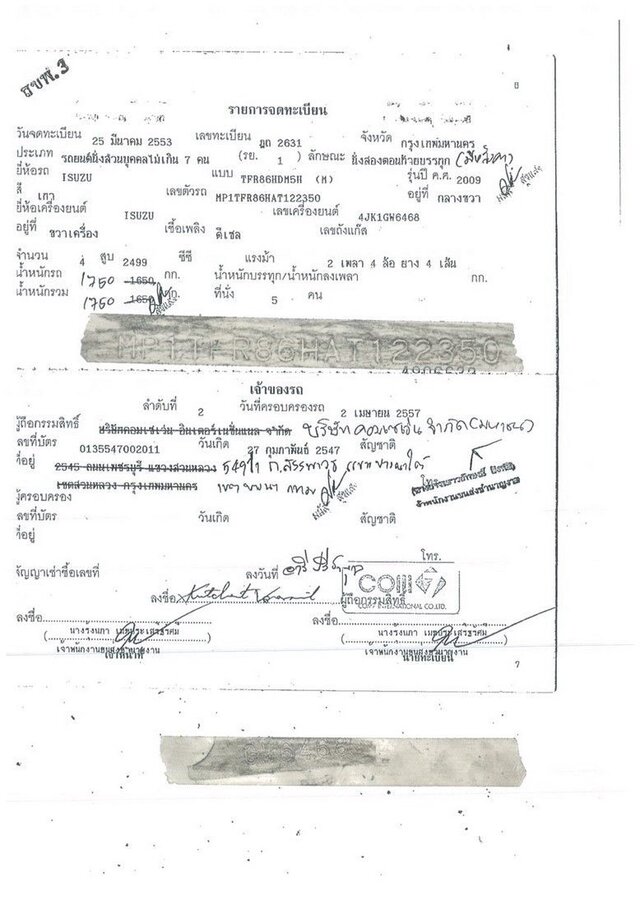 ธบพ.3
8
รายการจดทะเบียน
วันจดทะเบียน 25 มีนาคม 2553 เลขทะเบียน ฎถ 2631 จังหวัด กรุงเทพมหานคร
ประเภท รถยนต์นั่งส่วนบุคคลไม่เกิน 7 คน (รย. 1) ลักษณะ นั่งสองตอนท้ายบรรทุก
ยี่ห้อรถ ISUZU แบบ TFR86HDM5H (M) รุ่นปี ค.ศ. 2009
สี เทา เลขตัวรถ MP1TFR86HAT122350 อยู่ที่ กลางขวา
ยี่ห้อเครื่องยนต์ ISUZU เลขเครื่องยนต์ 4JK1GW6468
อยู่ที่ ขวาเครื่อง เชื้อเพลิง ดีเซล เลขถังแก๊ส
จำนวน 4 สูบ 2499 ซีซี แรงม้า 2 เพลา 4 ล้อ ยาง 4 เส้น
น้ำหนักรถ 1750 1650 กก. น้ำหนักบรรทุก/น้ำหนักลงเพลา กก.
น้ำหนักรวม 1750 1650 กก. ที่นั่ง 5 คน
MP1TFR86HAT122350
เจ้าของรถ
ลำดับที่ 2 วันที่ครอบครองรถ 2 เมษายน 2557
ผู้ถือกรรมสิทธิ์ บริษัทคอมเซเว่น อินเตอร์เนชั่นแนล จำกัด บริษัท คอมเซเว่น จำกัด (มหาชน)
เลขที่บัตร 0135547002011 วันเกิด 27 กุมภาพันธ์ 2547 สัญชาติ
ที่อยู่ 2545 ถนนเพชรบุรี แขวงสวนหลวง 549/1 ถ.สรรพาวุธ แขวงบางนาใต้
เขตสวนหลวง กรุงเทพมหานคร เขตบางนา กทม โทร.
เจ้าพนักงานขนส่งชำนาญงาน
ผู้ครอบครอง
เลขที่บัตร วันเกิด สัญชาติ
ที่อยู่
โทร.
สัญญาเช่าซื้อเลขที่ ลงวันที่
COM 7
COM7 INTERNATIONAL CO.,LTD.
ลงชื่อ ผู้ถือกรรมสิทธิ์
ลงชื่อ ลงชื่อ
เจ้าพนักงานขนส่งชำนาญงาน เจ้าพนักงานขนส่งชำนาญงาน
เจ้าหน้าที่ นายทะเบียน
7